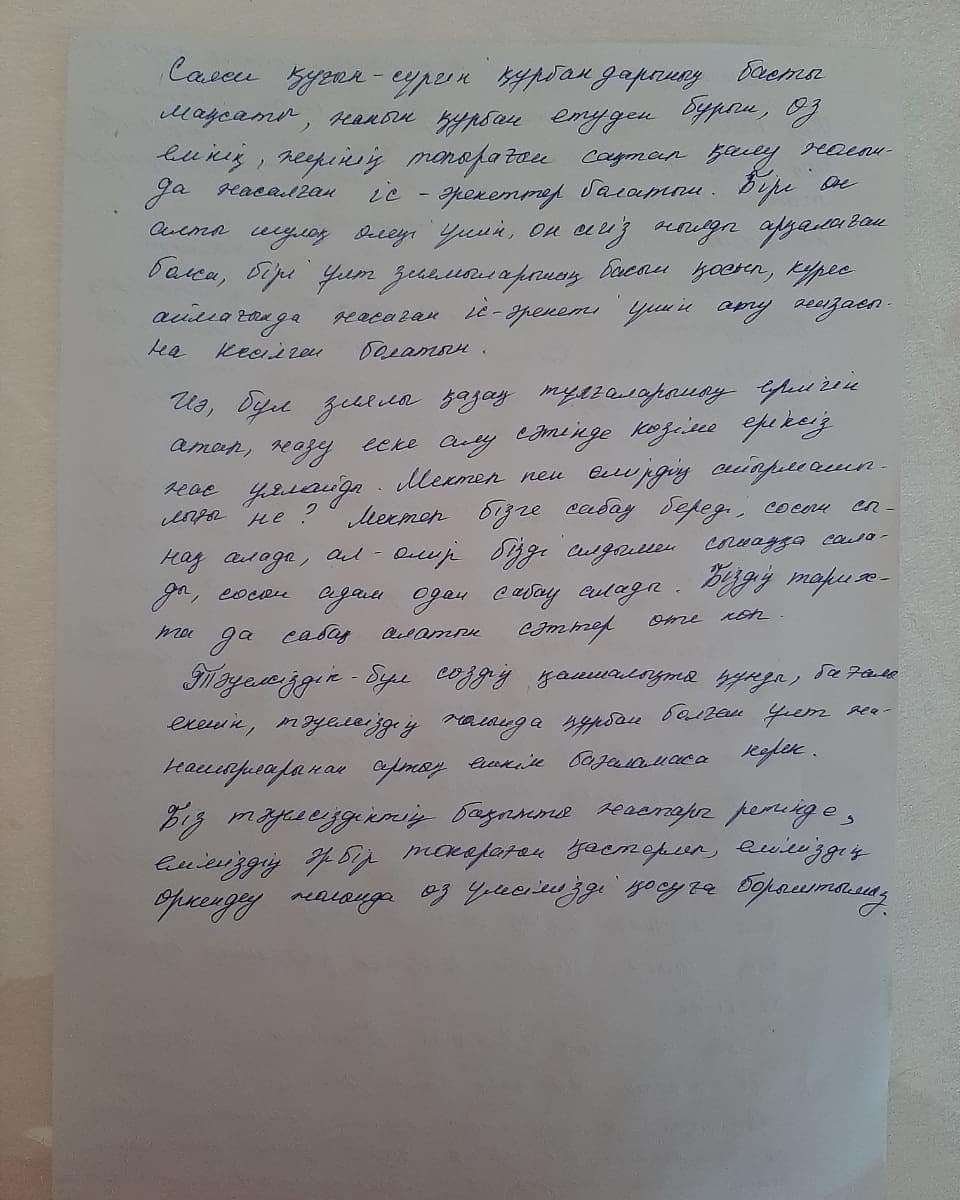 Саяси қуғын-сүргін құрбандарының басты
мақсаты, жанын құрбан етуден бұрын, өз
елінің, жерінің топырағын сақтап қалу жолын-
да жасалған іс-әрекеттер болатын. Бірі он
алты шумақ өлеңі үшін, он сегіз жылды арқалаған
болса, бірі ұлт зиялыларының басын қосып, күрес
аймағында жасаған іс-әрекеті үшін ату жазасы-
на кесілген болатын.
Иә, бұл зиялы қазақ тұлғаларының ерлігін
атап, жазу еске алу сәтінде көзіме еріксіз
жас үялайды. Мектеп пен өмірдің айырмашы-
лығы не? Мектеп бізге сабақ береді, сосын сы-
нақ алады, ал-өмір бізді алдымен сынаққа сала-
ды, сосын адам одан сабақ алады. Біздің тарих-
та да сабақ алатын сәттер өте көп.
Тәуелсіздік-бұл сөздің қаншалықты құнды, бағалы
екенін, тәуелсіздік жолында құрбан болған ұлт жа-
нашырларынан артық ешкім бағаламаса керек.
Біз тәуелсіздіктің бақытты жастары ретінде,
еліміздің әрбір топырағын қастерлеп, еліміздің
өркендеу жолында өз үлесімізді қосуға борыштымыз.